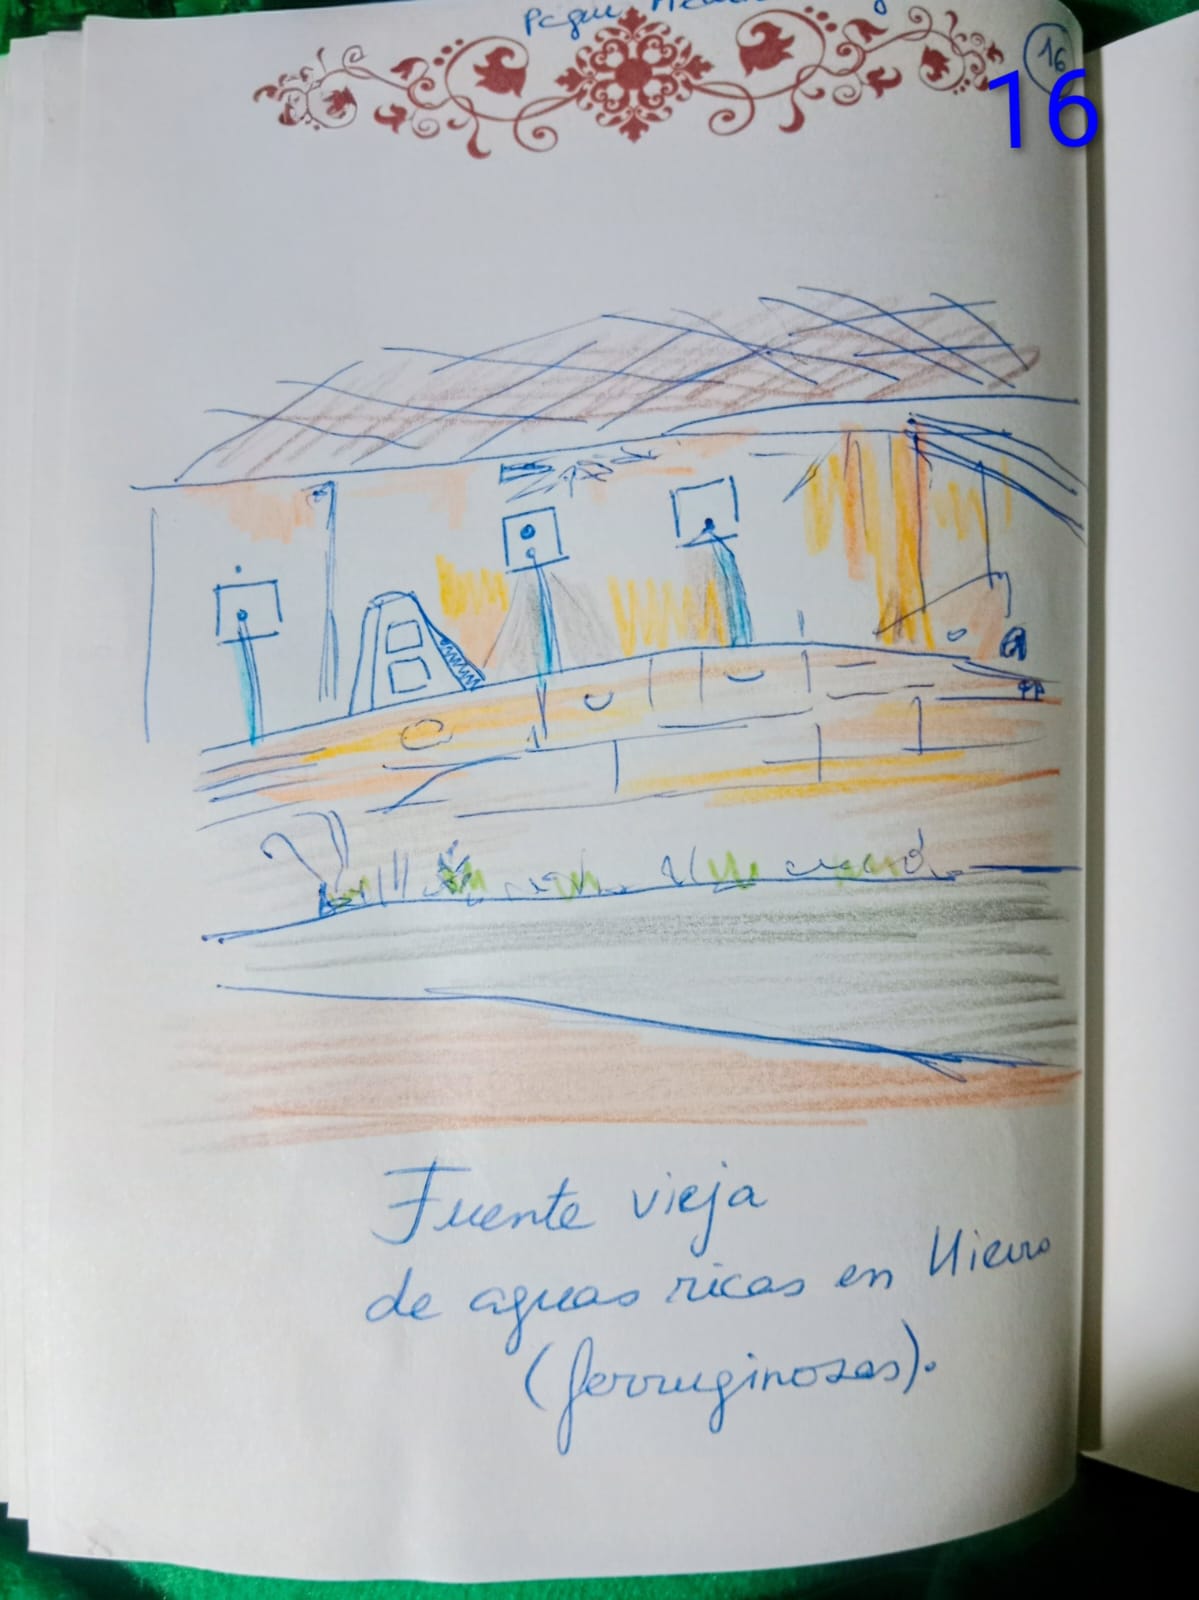 16
16
Fuente vieja
de aguas ricas en Hierro
(ferruginosas).